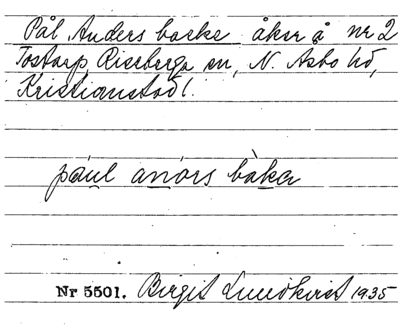 Pål Anders backe åker å nr 2
Tostarp Riseberga sn, N. Åsbo hd,
Kristianstad l.
pául anórs bàka
Nr 5501. Birgit Lundkvist 1935